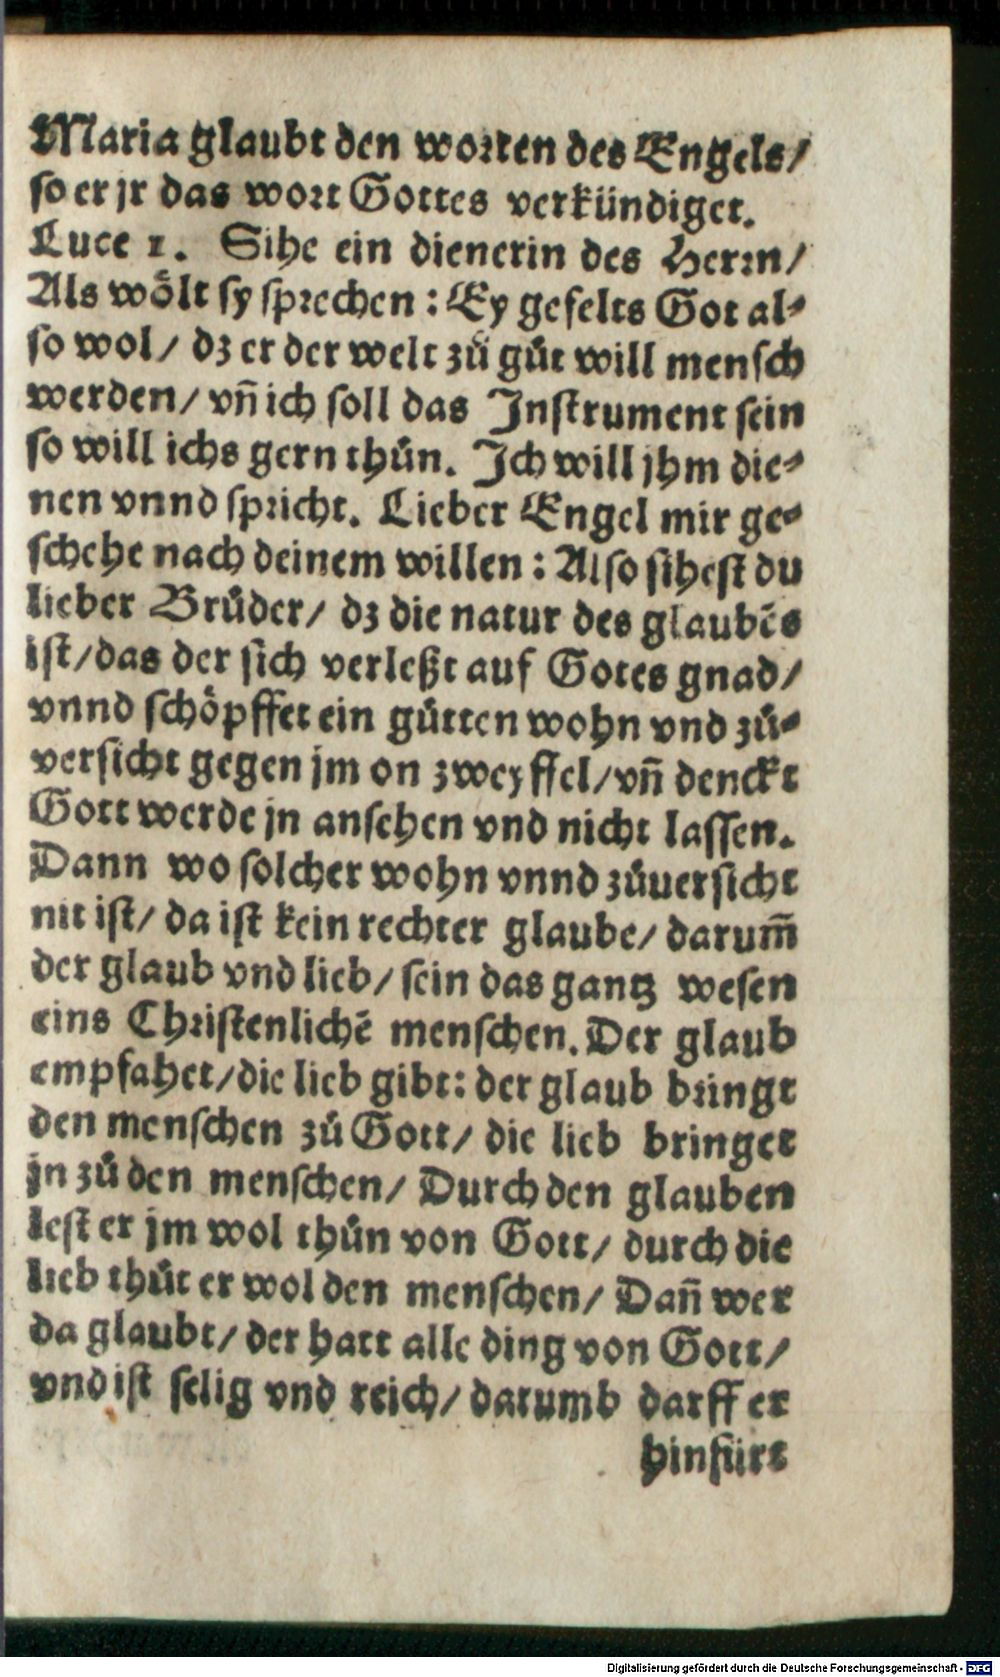 Maria glaubt den worten des Engels/
so er jr das wort Gottes verkündiget.
Luce 1. Sihe ein dienerin des Herrn/
Als wo̊lt sy sprechen: Ey gefelts Got al⸗
so wol/ dz er der welt zů gůt will mensch
werden/ vn̄ ich soll das Instrument sein
so will ichs gern thůn. Ich will jhm die⸗
nen vnnd spricht. Lieber Engel mir ge⸗
schehe nach deinem willen: Also sihest du
lieber Brůder/ dz die natur des glaubēs
ist/ das der sich verleßt auf Gotes gnad/
vnnd schöpffet ein gůtten wohn vnd zů⸗
versicht gegen jm on zweyffel/ vn̄ denckt
Gott werde jn ansehen vnd nicht lassen.
Dann wo solcher wohn vnnd zůuersicht
nit ist/ da ist kein rechter glaube/ darum̄
der glaub vnd lieb/ sein das gantz wesen
eins Christenlichē menschen. Der glaub
empfahet/ die lieb gibt: der glaub bringt
den menschen zů Gott/ die lieb bringet
jn zů den menschen/ Durch den glauben
lest er jm wol thůn von Gott/ durch die
lieb thůt er wol den menschen/ Dan̄ wer
da glaubt/ der hatt alle ding von Gott/
vnd ist selig vnd reich/ darumb darff er
hinfürt
Digitalisierung gefördert durch die Deutsche Forschungsgemeinschaft - DFG